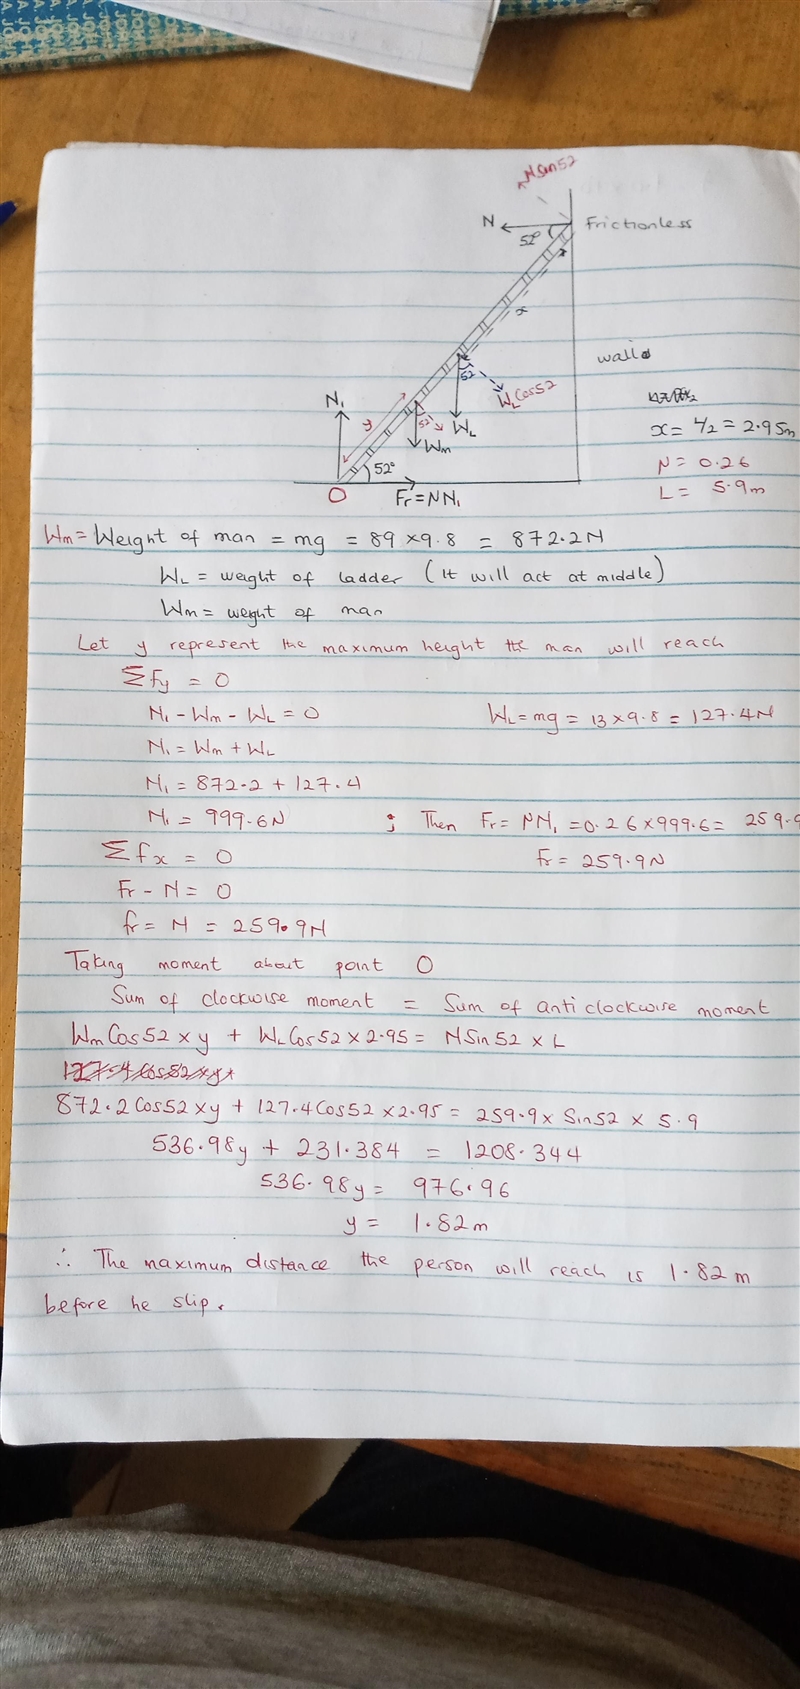 NSin52
N
52°
frictionless
x
x
wall
52
WLCos52
N1
y
52
WL
Wm
x = L/2 = 2.95m
52°
μ = 0.26
O
Fr=μN1
L = 5.9m
Wm = Weight of man = mg = 89 × 9.8 = 872.2N
WL = weight of ladder (It will act at middle)
Wm = weight of man
Let y represent the maximum height the man will reach
∑fy = 0
N1 - Wm - WL = 0 WL = mg = 13 × 9.8 = 127.4N
N1 = Wm + WL
N1 = 872.2 + 127.4
N1 = 999.6N ; Then Fr = μN1 = 0.26 × 999.6 = 259.9
∑fx = 0 Fr = 259.9N
Fr - N = 0
fr = N = 259.9N
Taking moment about point O
Sum of clockwise moment = Sum of anticlockwise moment
WmCos52 × y + WLCos52 × 2.95 = NSin52 × L
872.2Cos52 × y + 127.4Cos52 × 2.95 = 259.9 × Sin52 × 5.9
536.98y + 231.384 = 1208.344
536.98y = 976.96
y = 1.82m
∴ The maximum distance the person will reach is 1.82m
before he slip.